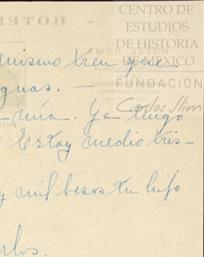 HOTE
CENTRO DE
ESTUDIOS
DE HISTORIA
DE MÉXICO
FUNDACIÓN
Carlos Slim
mismo tren que
aguas. —
mía. Ya tengo
Estoy medio tris-
y mil besos tu hijo
Carlos.